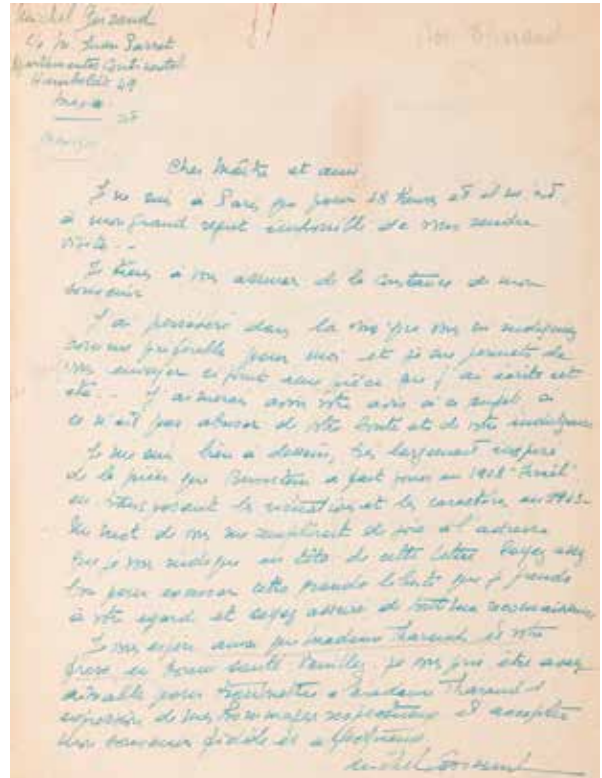 Michel
c/o M. Juan
Continental
Humboldt 49
Mexico

Cher Maître et ami
Je ne suis à Paris que pour 48 heures et il m'est
à mon grand regret impossible de vous rendre
visite..
Je tiens à vous assurer de la constance de mon
souvenir
J'ai persévéré dans la voie que vous m'
comme préférable pour moi et je me permets de
vous envoyer une pièce que j'ai écrite cet
été.. J'aimerais avoir votre avis à ce sujet si
ce n'est pas abuser de votre bonté et de votre indulgence
Je me suis bien à dessein, très largement inspiré
de la pièce que Bernstein a fait jouer en 1908 "Israël"
en transposant la situation et les caractères en
Un mot de vous me remplirait de joie à l'adresse
que je vous indique en tête de cette lettre. Soyez assez
bon pour excuser cette grande liberté que je prends
à votre égard et soyez assuré de toute ma reconnaissance
J'espère que madame Tharaud et votre
frère en bonne santé. Veuillez je vous prie être assez
aimable pour transmettre à madame Tharaud l'
expression de mes hommages respectueux et accepter
mon souvenir fidèle et affectueux
Michel